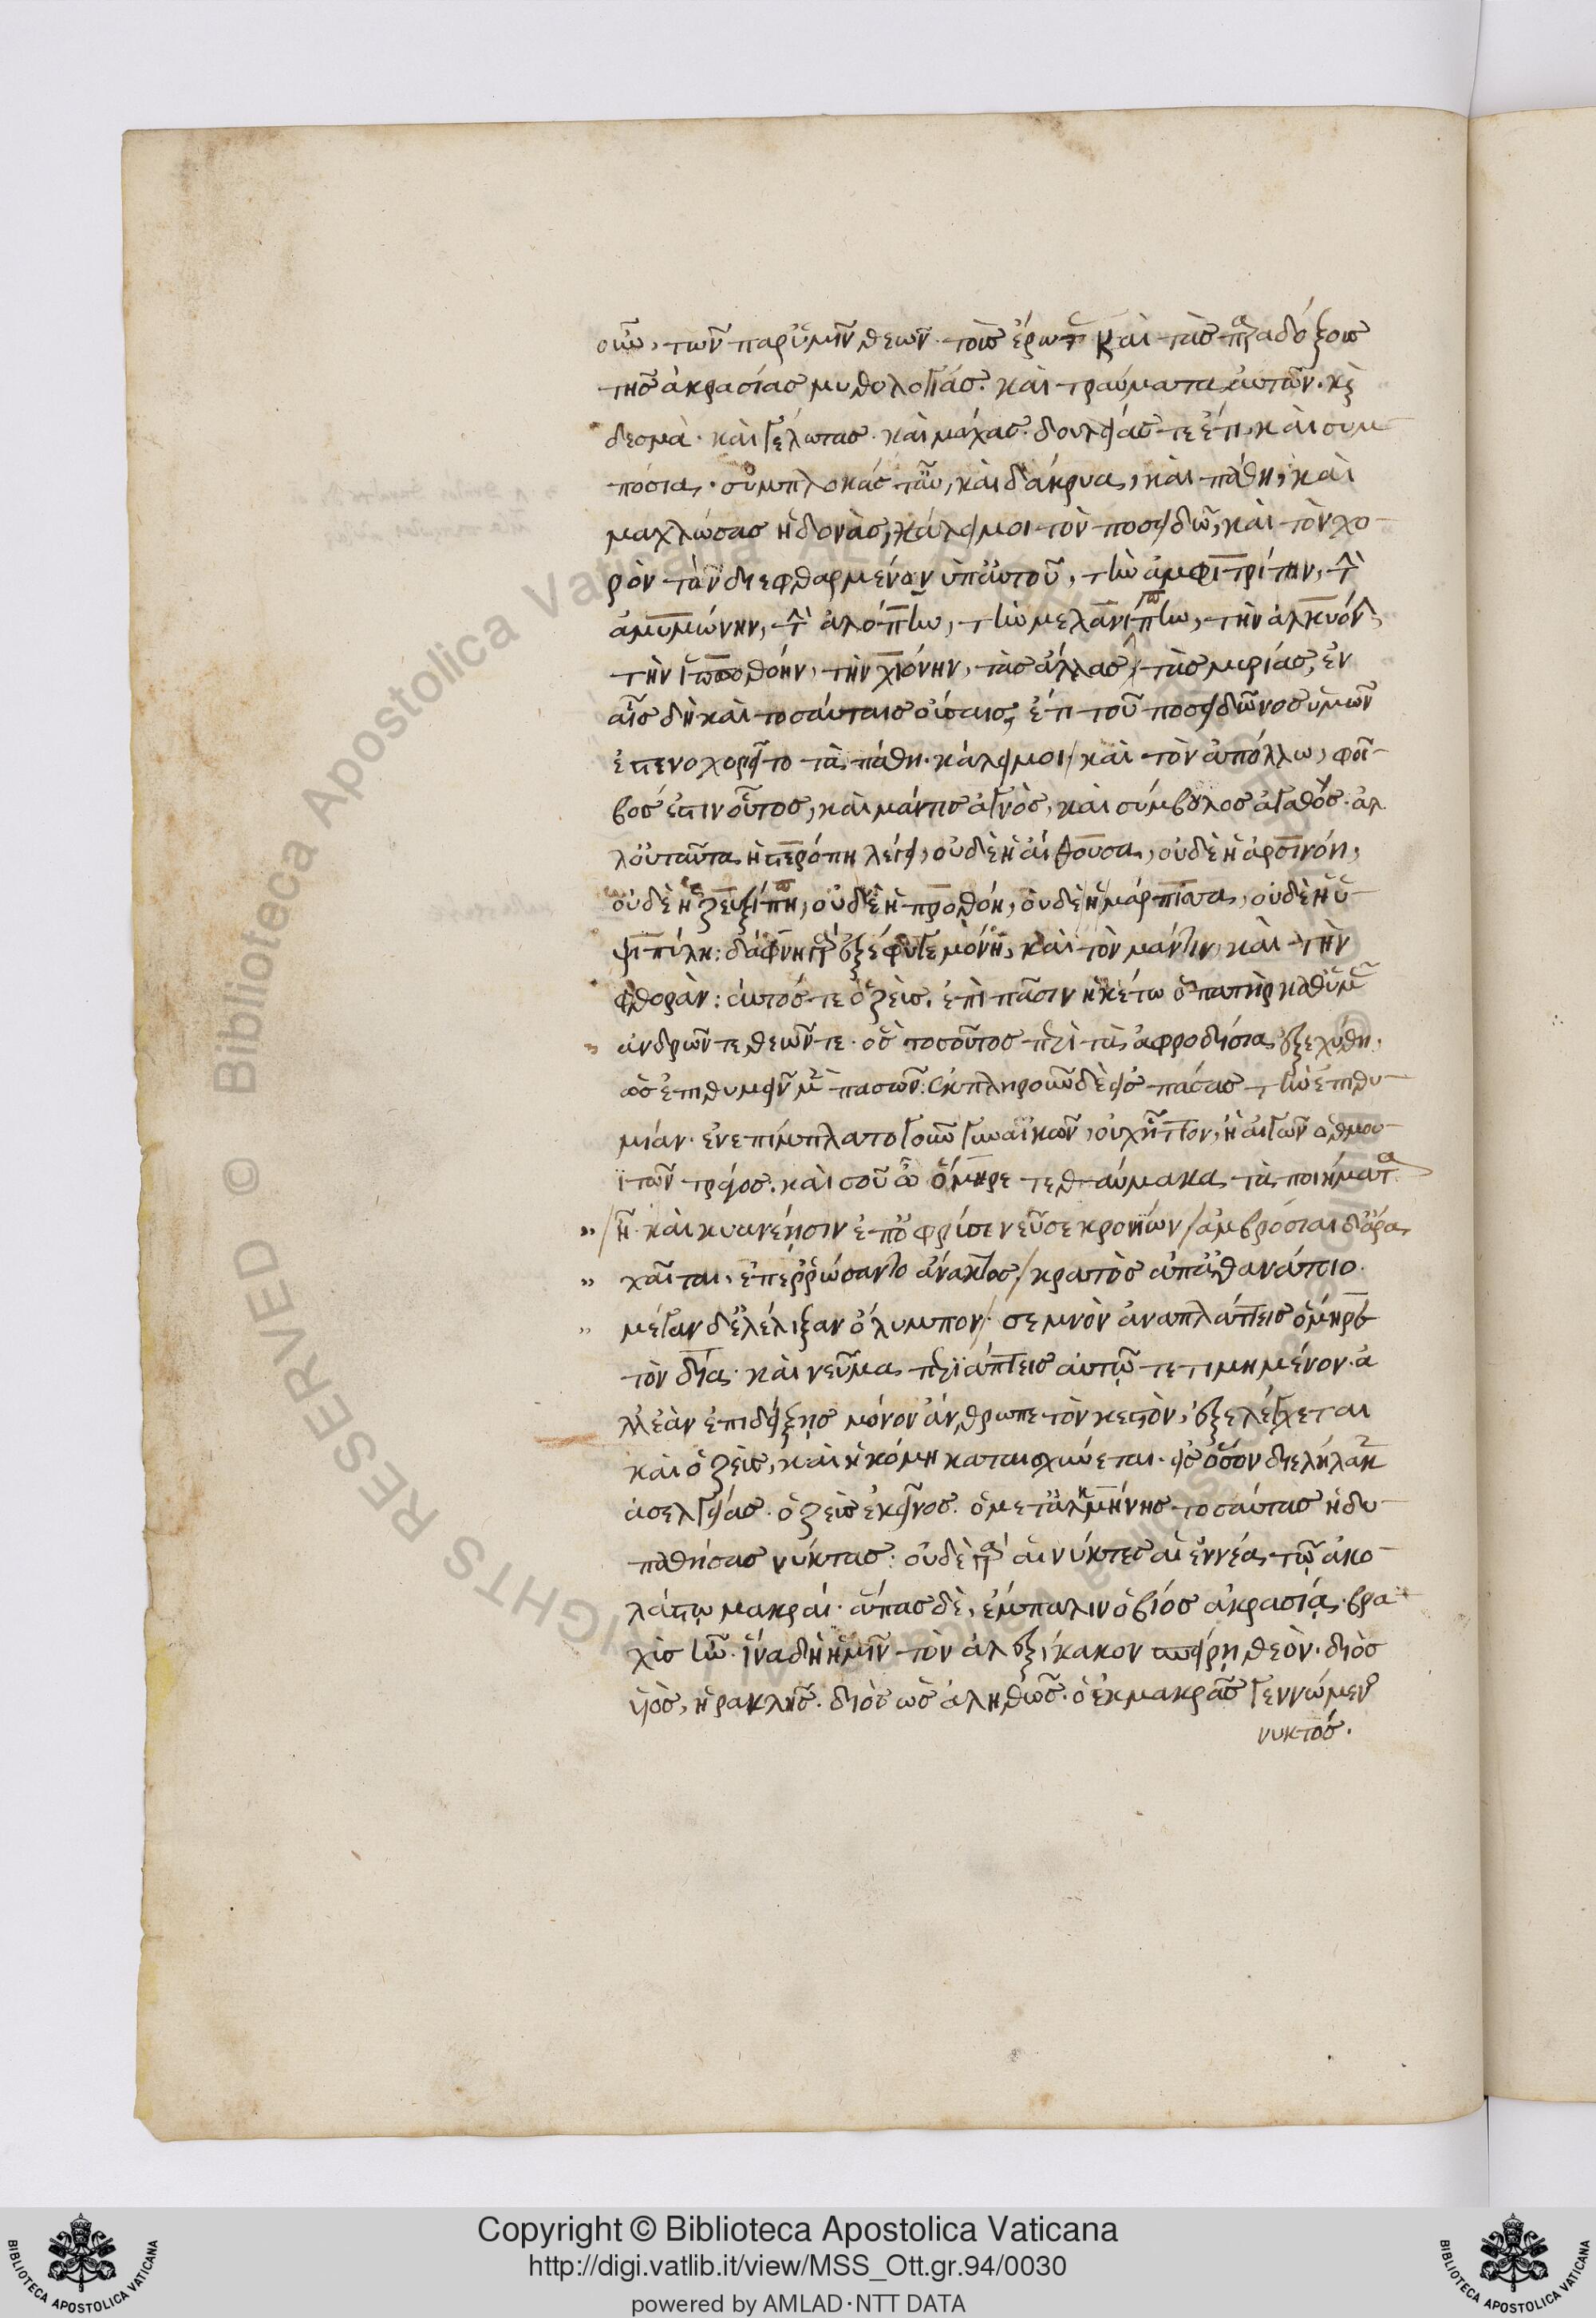 οὖν, τῶν παρ' ὑμῖν θεῶν τοὺς ἔρωτας καὶ τὰς παραδόξους
τῆς ἀκρασίας μυθολογίας. καὶ τραύματα αὐτῶν. καὶ
δεσμὰ. καὶ γέλωτας. καὶ μάχας. δουλείας τε ἔτι, καὶ συμ
πόσια. συμπλοκάς τ' αὖ, καὶ δάκρυα, καὶ πάθη, καὶ
μαχλώσας ἡδονὰς, κάλει μοι τὸν ποσειδῶ, καὶ τὸν χο-
ρὸν τὸν διεφθαρμένον ὑπ' αὐτοῦ, τὴν ἀμφιτρίτην, τὴν
ἀμυμώνην, τὴν ἀλόπην, τὴν μελανίππην, τὴν ἀλκυόν
τὴν ἱπποθόην, τὴν χιόνην, τὰς ἄλλας, τὰς μυρίας, ἐν
αἷς δὴ καὶ τοσαύταις οὔσαις, ἔτι τοῦ ποσειδῶνος ὑμῶν
ἐστενοχωρεῖτο τὰ πάθη. κάλει μοι καὶ τὸν ἀπόλλω, φοῖ-
βος ἐστιν οὗτος, καὶ μάντις ἁγνὸς, καὶ σύμβουλος ἀγαθός. ἀλ
λ' οὐ ταῦτα ἡ στερόπη λέγει, οὐδὲ ἡ αἴθουσα, οὐδὲ ἡ ἀρσινόη,
οὐδὲ ἡ ζευξίππη, οὐδὲ ἡ προθόη, οὐδὲ ἡ μάρπισσα, οὐδὲ ἡ ὑ-
ψιπύλη: δάφνη γὰρ ἐξέφυγε μόνη, καὶ τὸν μάντιν, καὶ τὴν
φθοράν: αὐτός τε ὁ ζεὺς. ἐπὶ πᾶσιν ἡκέτω ὁ πατὴρ καθ' ὑμᾶς
ἀνδρῶν τε θεῶν τε. ὃς τοσοῦτος περὶ τὰ ἀφροδίσια ἐξεχύθη,
ὡς ἐπιθυμεῖν μὲν πασῶν. ἐκπληροῦν δὲ εἰς πάσας τὴν ἐπιθυ-
μίαν. ἐνεπίμπλατο γοῦν γυναικῶν, οὐχ ἧττον, ἢ αἰγῶν ὁ θμου-
ϊτῶν τράγος. καὶ σοῦ ὦ ὅμηρε τεθαύμακα τὰ ποιήματα
ἦ καὶ κυανέῃσιν ἐπ' ὀφρύσι νεῦσε κρονίων / ἀμβρόσιαι δ' ἄρα
χαῖται, ἐπερρώσαντο ἄνακτος / κρατὸς ἀπ' ἀθανάτοιο.
μέγαν δ' ἐλέλιξεν ὄλυμπον / σεμνὸν ἀναπλάττεις ὅμηρε
τὸν δία. καὶ νεῦμα περιάπτεις αὐτῷ τετιμημένον. ἀ
λλ' ἐὰν ἐπιδείξῃς μόνον ἄνθρωπε τὸν κεστὸν, ἐξελέγχεται
καὶ ὁ ζεὺς, καὶ ἡ κόμη καταισχύνεται. εἰς ὅσον διελήλακεν
ἀσελγείας. ὁ ζεὺς ἐκεῖνος. ὁ μετ' ἀλκμήνης τοσαύτας ἡδυ-
παθήσας νύκτας: οὐδὲ γὰρ αἱ νύκτες αἱ ἐννέα τῷ ἀκο-
λάστῳ μακραί. ἅπας δὲ, ἔμπαλιν ὁ βίος ἀκρασίᾳ βρα
χὺς ἦν. ἵνα δὴ ἡμῖν τὸν ἀλεξίκακον σπείρῃ θεόν. διὸς
υἱὸς, ἡρακλῆς. διὸς ὡς ἀληθῶς. ὁ ἐκ μακρᾶς γεννώμενος
νυκτός.
Copyright © Biblioteca Apostolica Vaticana
http://digi.vatlib.it/view/MSS_Ott.gr.94/0030
powered by AMLAD·NTT DATA